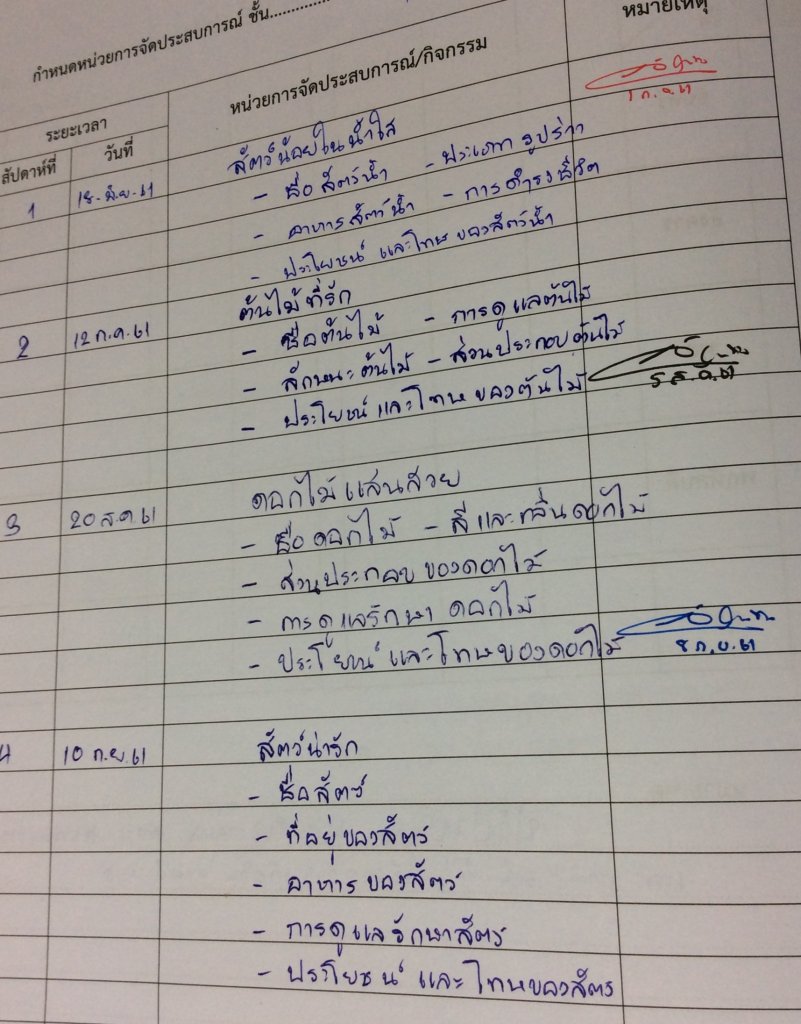 กำหนดหน่วยการจัดประสบการณ์ ชั้น................
ระยะเวลา
หน่วยการจัดประสบการณ์/กิจกรรม
หมายเหตุ
สัปดาห์ที่
วันที่
1 ก.ค. 61
1 18 มิ.ย. 61 สัตว์น้อยในน้ำใส
- ชื่อสัตว์น้ำ - ประเภท รูปร่าง
- อาหารสัตว์น้ำ - การดำรงชีวิต
- ประโยชน์ และโทษของสัตว์น้ำ
2 12 ก.ค. 61 ต้นไม้ที่รัก
- ชื่อต้นไม้ - การดูแลต้นไม้
- ลักษนะต้นไม้ - ส่วนประกอบต้นไม้
- ประโยชน์ และโทษของต้นไม้
5 ส.ค. 61
3 20 ส.ค. 61 ดอกไม้แสนสวย
- ชื่อดอกไม้ - สีและกลิ่นดอกไม้
- ส่วนประกอบของดอกไม้
- การดูแลรักษา ดอกไม้
- ประโยชน์ และโทษของดอกไม้
8 ก.ย. 61
4 10 ก.ย. 61 สัตว์น่ารัก
- ชื่อสัตว์
- ที่อยู่ของสัตว์
- อาหารของสัตว์
- การดูแลรักษาสัตว์
- ประโยชน์ และโทษของสัตว์